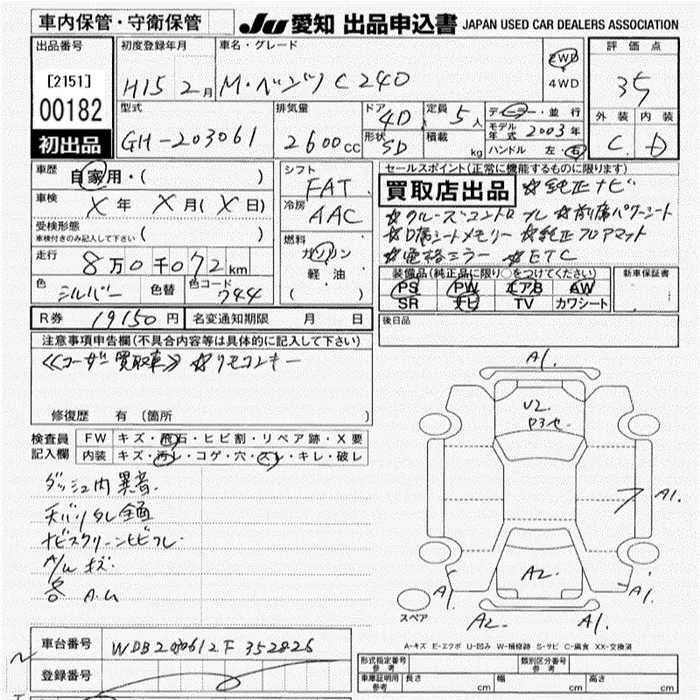 車内保管・守衛保管
JU 愛知 出品申込書 JAPAN USED CAR DEALERS ASSOCIATION
出品番号 初度登録年月 車名・グレード 評価点
[2151] H15 2月 M・ベンツ C240 2WD 4WD 35
00182 型式 排気量 ドア 4D 定員 5人 ディーラー・並行 外装 内装
初出品 GH-203061 2600cc 形状 SD 積載 kg モデル年式 2003年 C D
ハンドル 左・右
車歴 自家用・( ) シフト FAT セールスポイント(正常に機能するものに限ります)
買取店出品 ☆純正ナビ
車検 X年 X月(X日) 冷房 AAC ☆クルーズコントロール ☆前席パワーシート
受検形態 ( ) ☆D席シートメモリー ☆純正フロアマット
車検付きのみ記入して下さい
燃料 ガソリン 軽油 ( ) ☆電格ミラー ☆ETC
走行 8万0千072km
装備品(純正品に限り○をつけてください) 新車保証書
色 シルバー 色替 色コード 744 PS PW エアB AW
SR ナビ TV カワシート
R券 19150円 名変通知期限 月 日 後日品
注意事項申告欄(不具合内容等は具体的に記入して下さい)
≪ユーザー買取車≫ ☆リモコンキー
修復歴 有(箇所 )
検査員記入欄 FW キズ・飛石・ヒビ割・リペア跡・X要
内装 キズ・汚レ・コゲ・穴・スレ・キレ・破レ
ダッシュ内異音.
天バリタレ全面
ナビスクリーンヒビワレ
A/Wキズ.
各 A.U
A1.
U2.
A1.
A2.
A1. A1.
スペア A2 A1.
A-キズ E-エクボ U-凹み W-補修跡 S-サビ C-腐食 XX-交換済
車台番号 WDB2030612F352826
登録番号
形式指定番号 参考 類別区分番号 参考
車庫証明用 参考 長さ cm 幅 cm 高さ cm